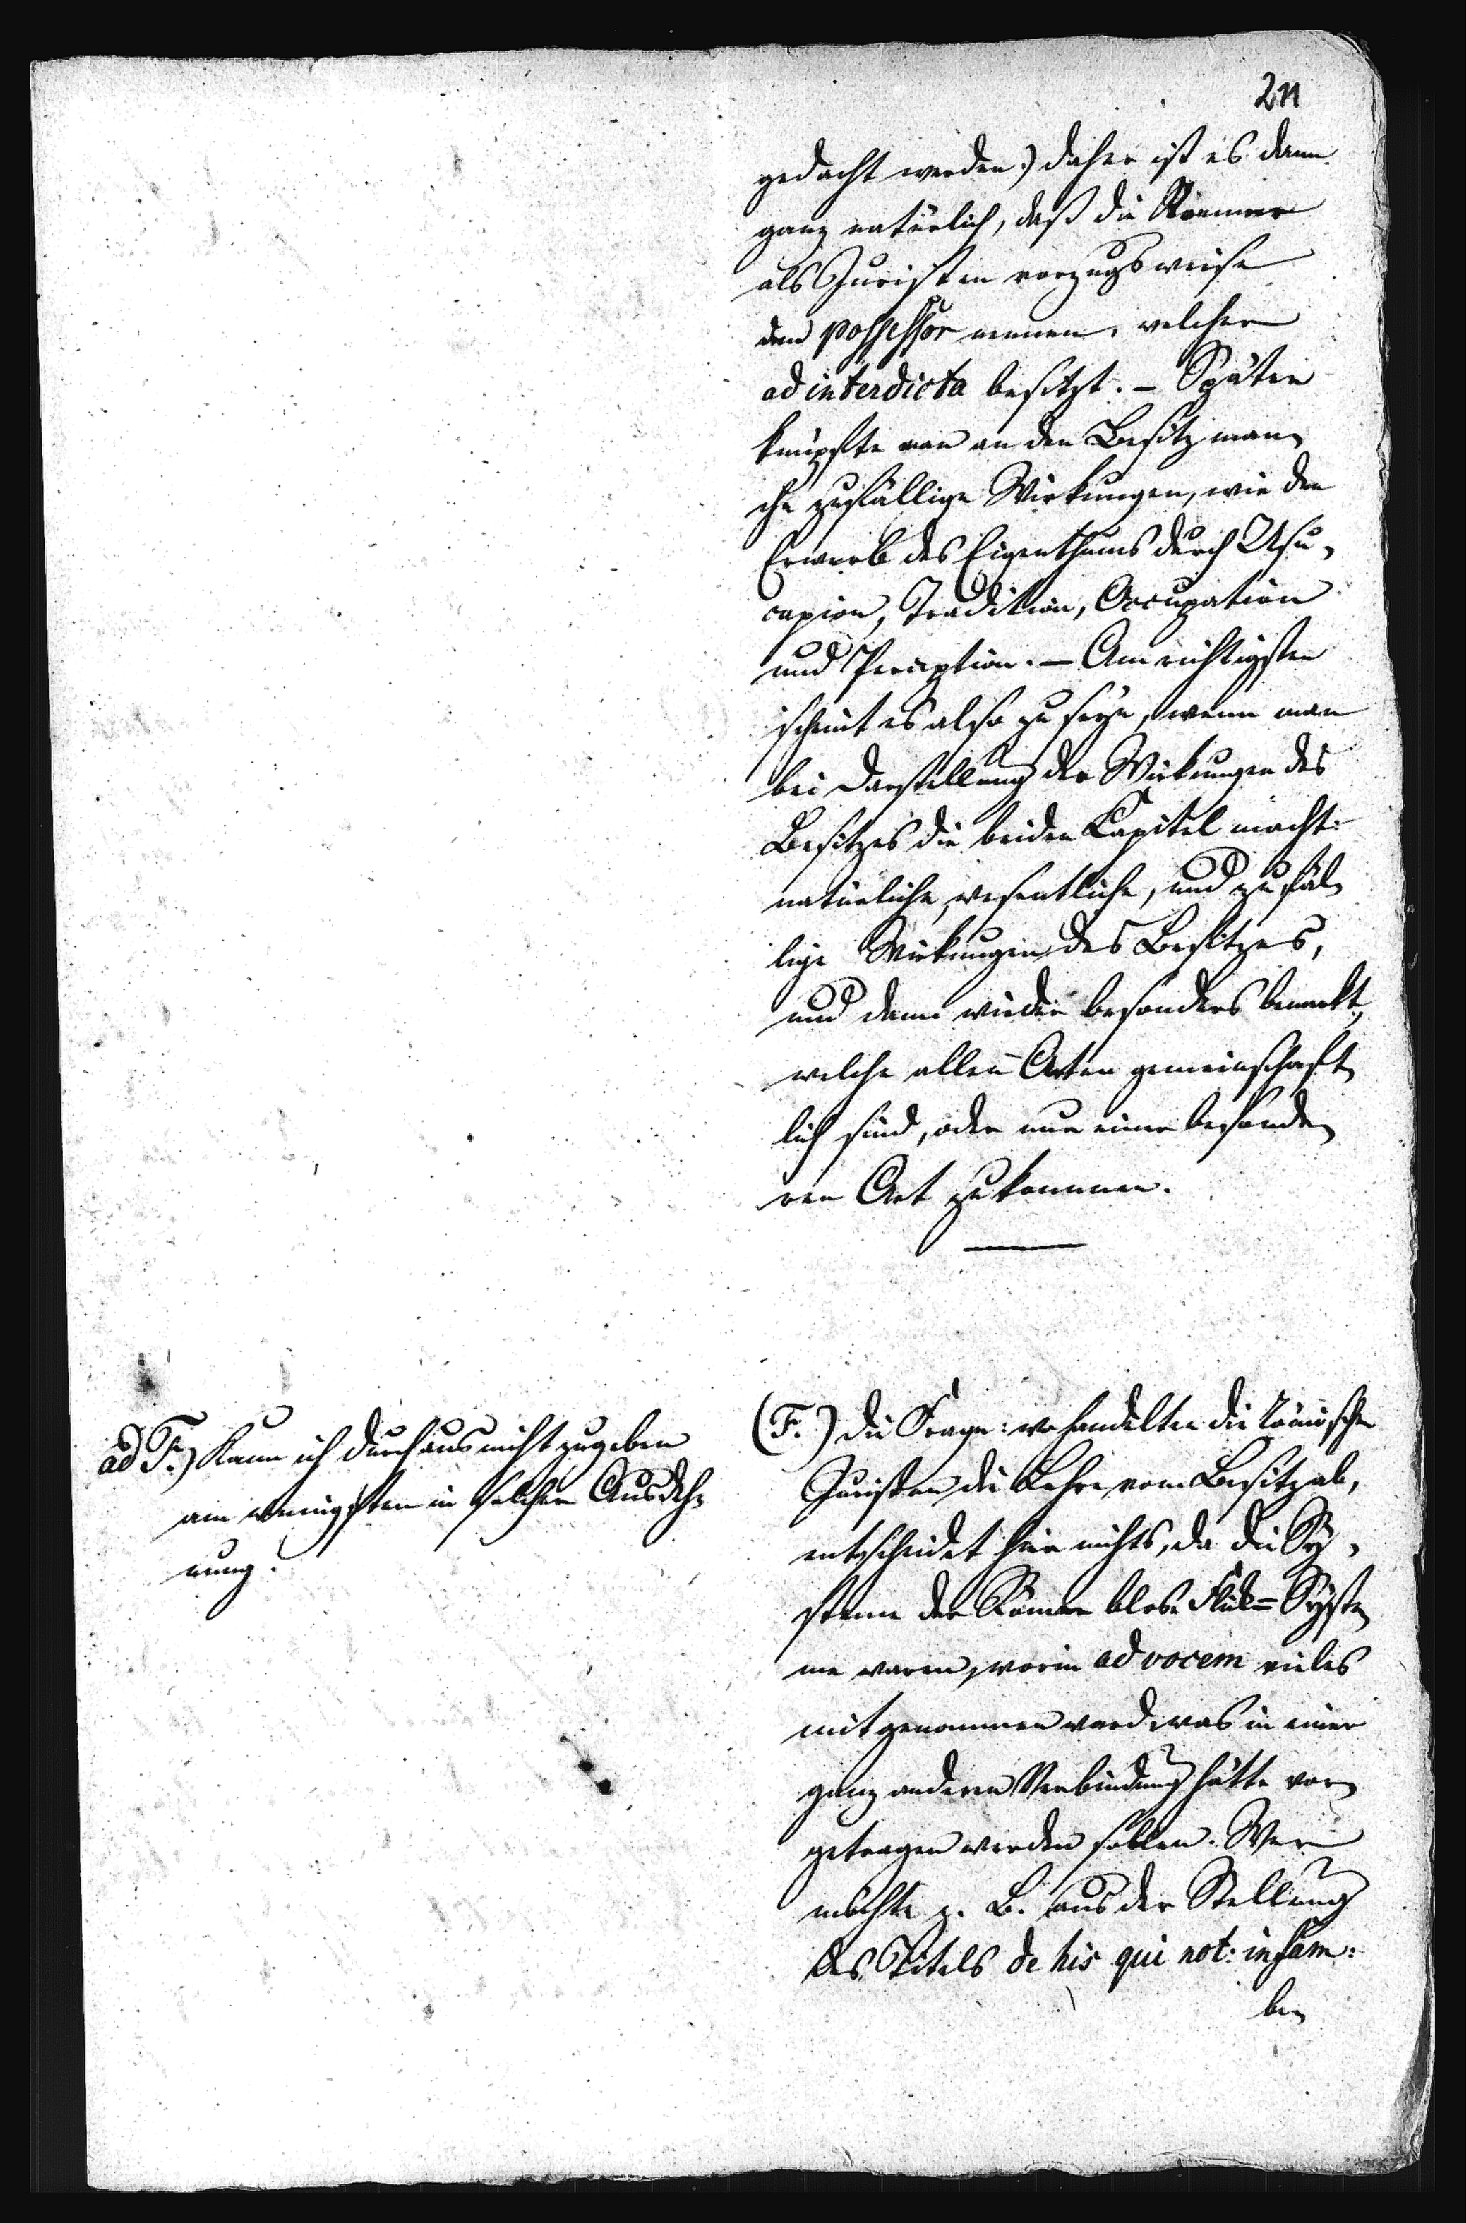 211
gedacht werden.) Daher ist es dann
ganz natürlich, daß die Roemer
als Juristen vorzugsweise
den possessor nennen, welcher
ad interdicta besitzt. – Später
knüpfte man an den Besitz man-
che zufällige Wirkungen, wie den
Erwerb des Eigenthums durch Usu-
capion, Tradition, Occupation
und Perception. – Am richtigsten
scheint es also zu seyn, wenn man
bei Darstellung der Wirkungen des
Besitzes die beiden Capitel macht:
natürliche, wesentliche, und zufäl-
lige Wirkungen des Besitzes,
und dann wieder besonders bemerkt,
welche allen Arten gemeinschaft-
lich sind, oder nur einer besonde-
ren Art zukommen.
(F.) Die Frage: wo handelten die römischen
Juristen die Lehre vom Besitz ab,
entscheidet hier nichts, da die Sy-
steme der Römer blose Flick=Syste-
me waren, worin ad vocem vieles
mitgenommen ward, was in einer
ganz anderen Verbindung hätte vor-
getragen werden sollen. Wer
möchte z. B. aus der Stellung
des Titels de his qui not: infam:
be-
ad F.) Kann ich durchaus nicht zugeben
am wenigsten in solcher Ausdeh-
nung.